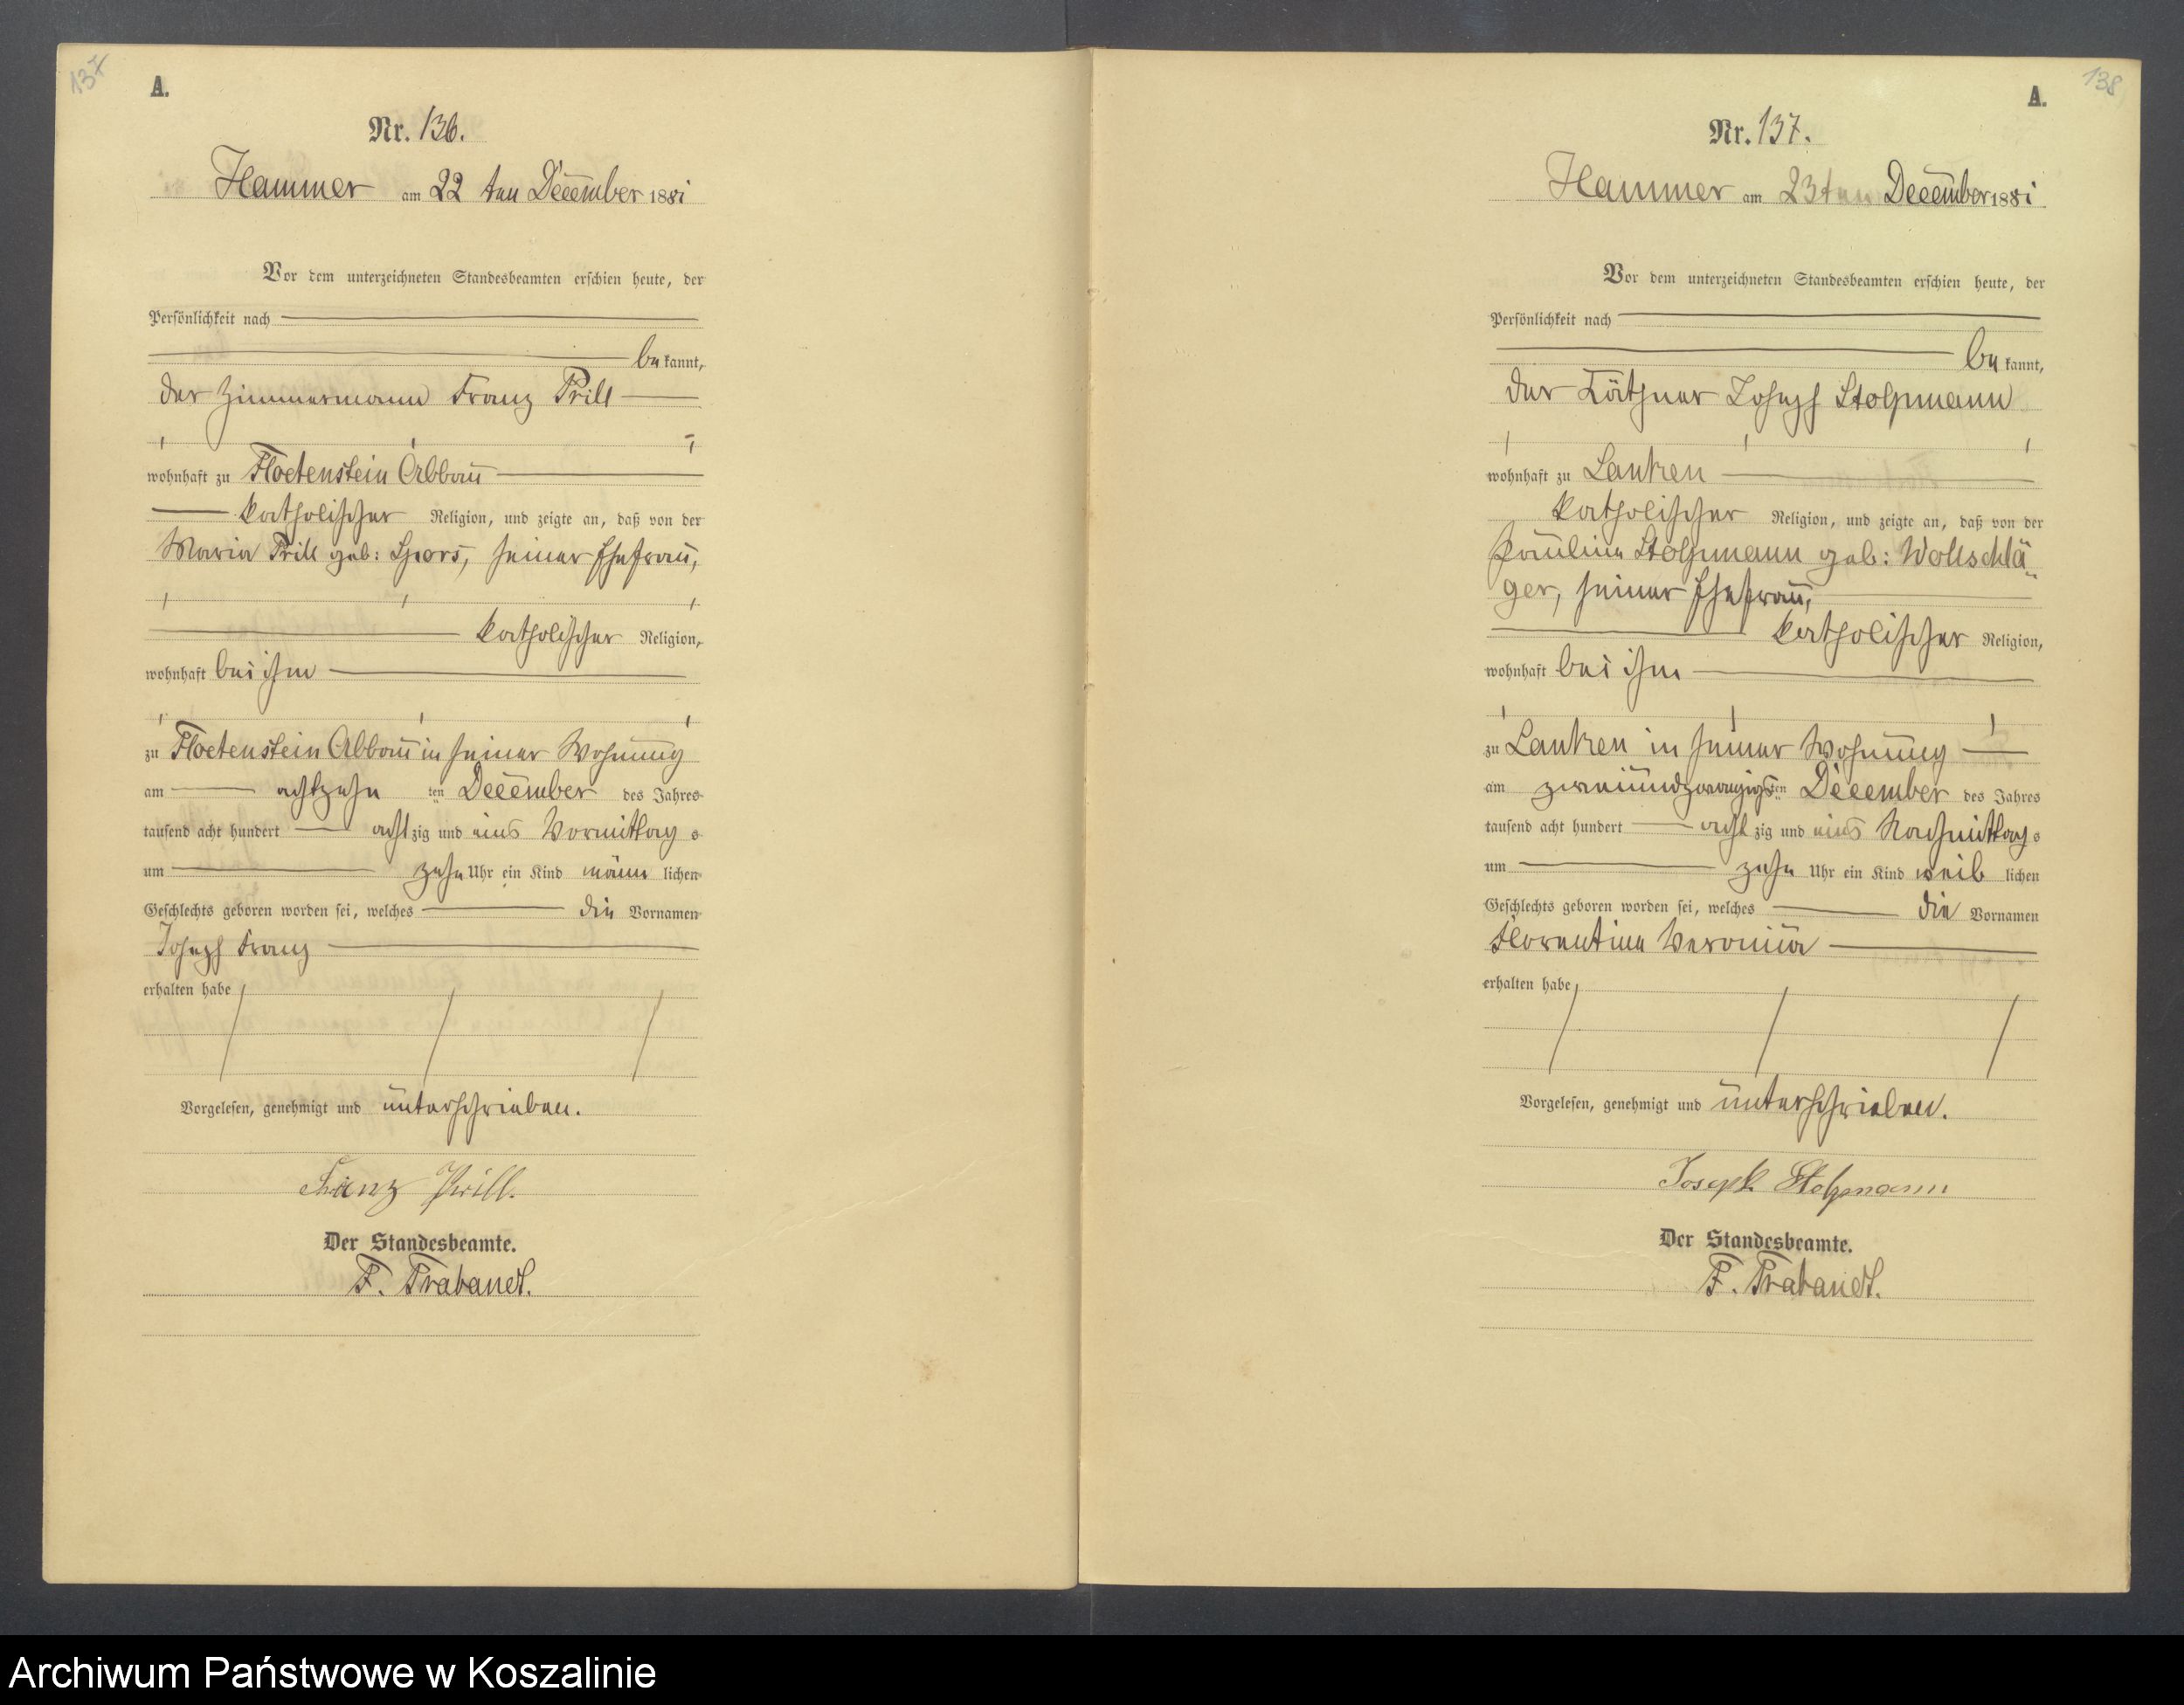 137
A.
Nr. 136.
Hammer am 22 ten December 1881
Vor dem unterzeichneten Standesbeamten erschien heute, der
Persönlichkeit nach
be kannt,
der Zimmermann Franz Prill
wohnhaft zu Floetenstein Abbau
katholischer Religion, und zeigte an, daß von der
Maria Prill geb: Spors, seiner Ehefrau,
katholischer Religion,
wohnhaft bei ihm
zu Floetenstein Abbau in seiner Wohnung
am achtzehn ten December des Jahres
tausend acht hundert acht zig und eins Vormittag s
um zehn Uhr ein Kind männ lichen
Geschlechts geboren worden sei, welches die Vornamen
Joseph Franz
erhalten habe
Vorgelesen, genehmigt und unterschrieben.
Franz Prill.
Der Standesbeamte.
F. Trabandt.
138
A.
Nr. 137.
Hammer am 23 ten December 1881
Vor dem unterzeichneten Standesbeamten erschien heute, der
Persönlichkeit nach
be kannt,
der Käthner Joseph Stolpmann
wohnhaft zu Lanken
katholischer Religion, und zeigte an, daß von der
Pauline Stolpmann geb: Wollschlä
ger, seiner Ehefrau,
katholischer Religion,
wohnhaft bei ihm
zu Lanken in seiner Wohnung
am zweiundzwanzigsten December des Jahres
tausend acht hundert acht zig und eins Nachmittag s
um zehn Uhr ein Kind weib lichen
Geschlechts geboren worden sei, welches die Vornamen
Florentine Veronica
erhalten habe
Vorgelesen, genehmigt und unterschrieben.
Joseph Stolpmann
Der Standesbeamte.
F. Trabandt.
Archiwum Państwowe w Koszalinie